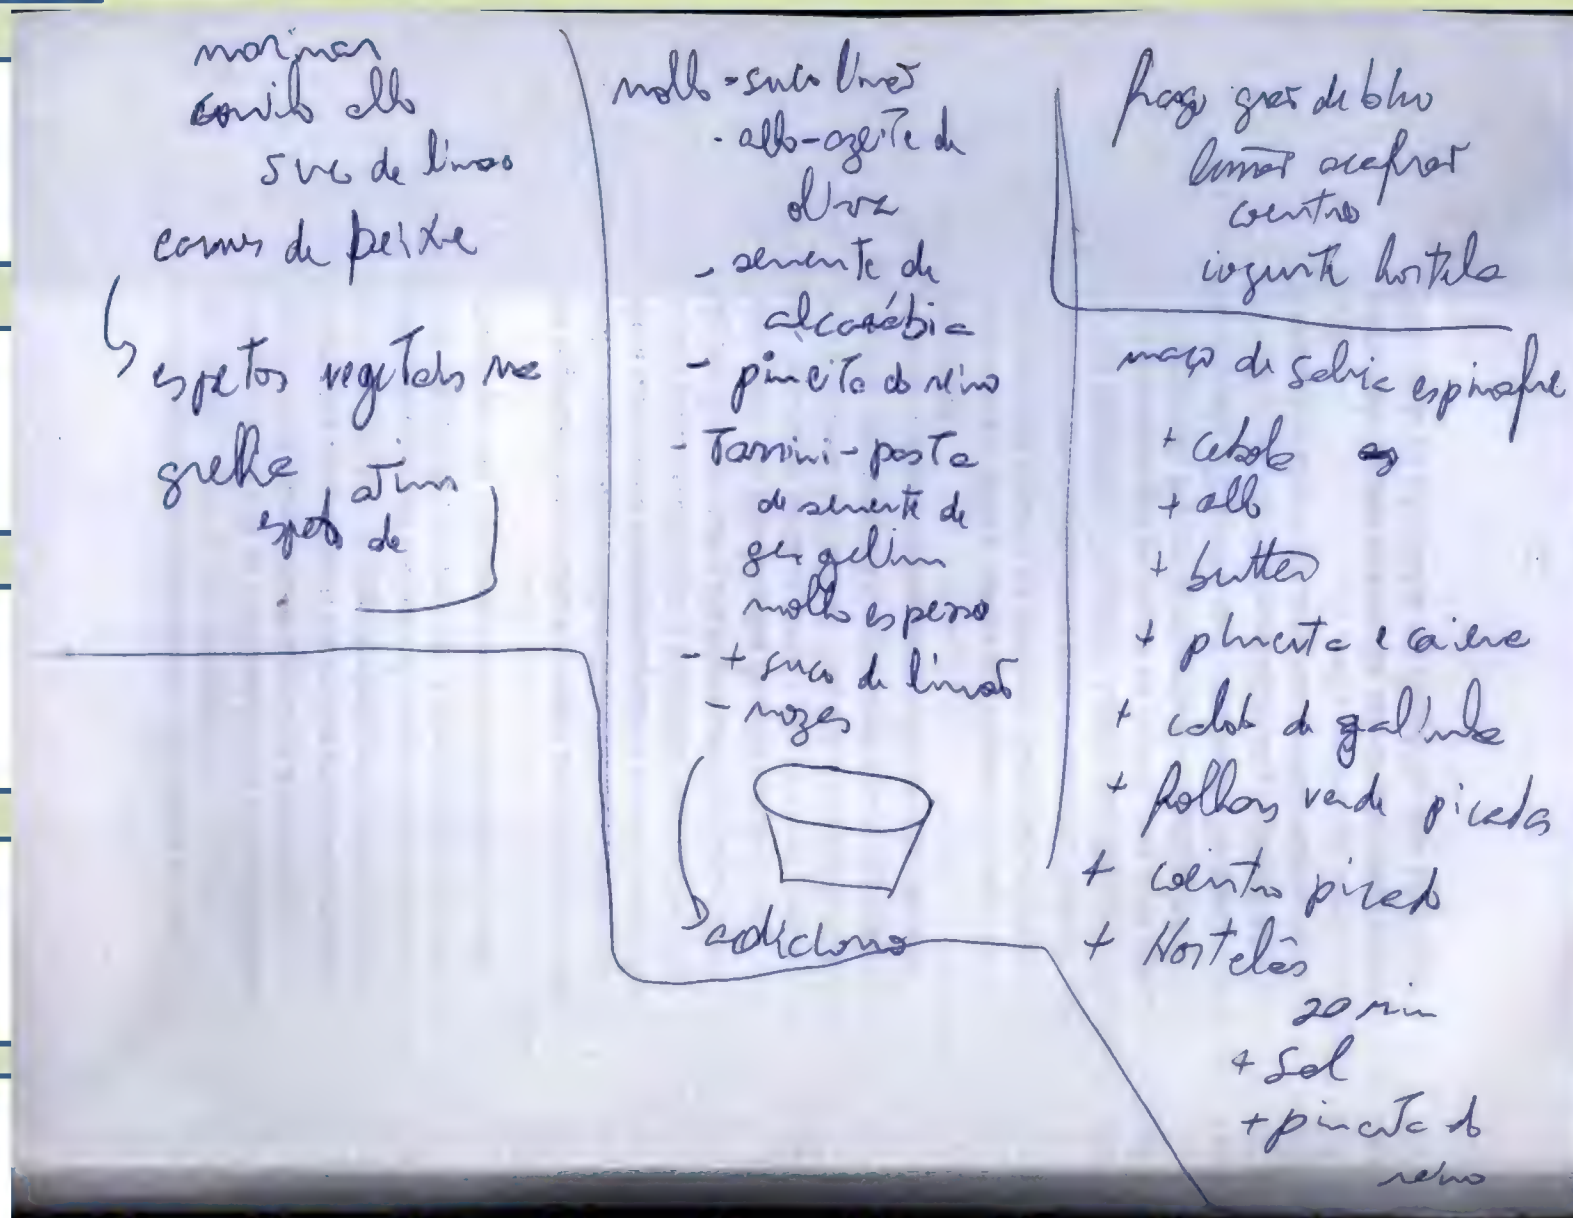 marinar
alho
suco de limao
carnes de peixe
espetos vegetais na
grelha, atum
espeto de
molho - suco limão
- alho - azeite de
oliva
- semente de
alcarábia
- pimenta do reino
- Tarrini - pasta
de semente de
gergelim
molho espesso
- + suco de limão
- nozes
adiciona
frango grão de bico
limão açafrão
coentro
iogurte hortela
maço de salvia espinafre
+ cebola
+ alho
+ butter
+ pimenta e caiena
+ caldo de galinha
+ folhas verde picadas
+ coentro picado
+ Hortelãs
20 min
+ Sal
+ pimenta do
reino